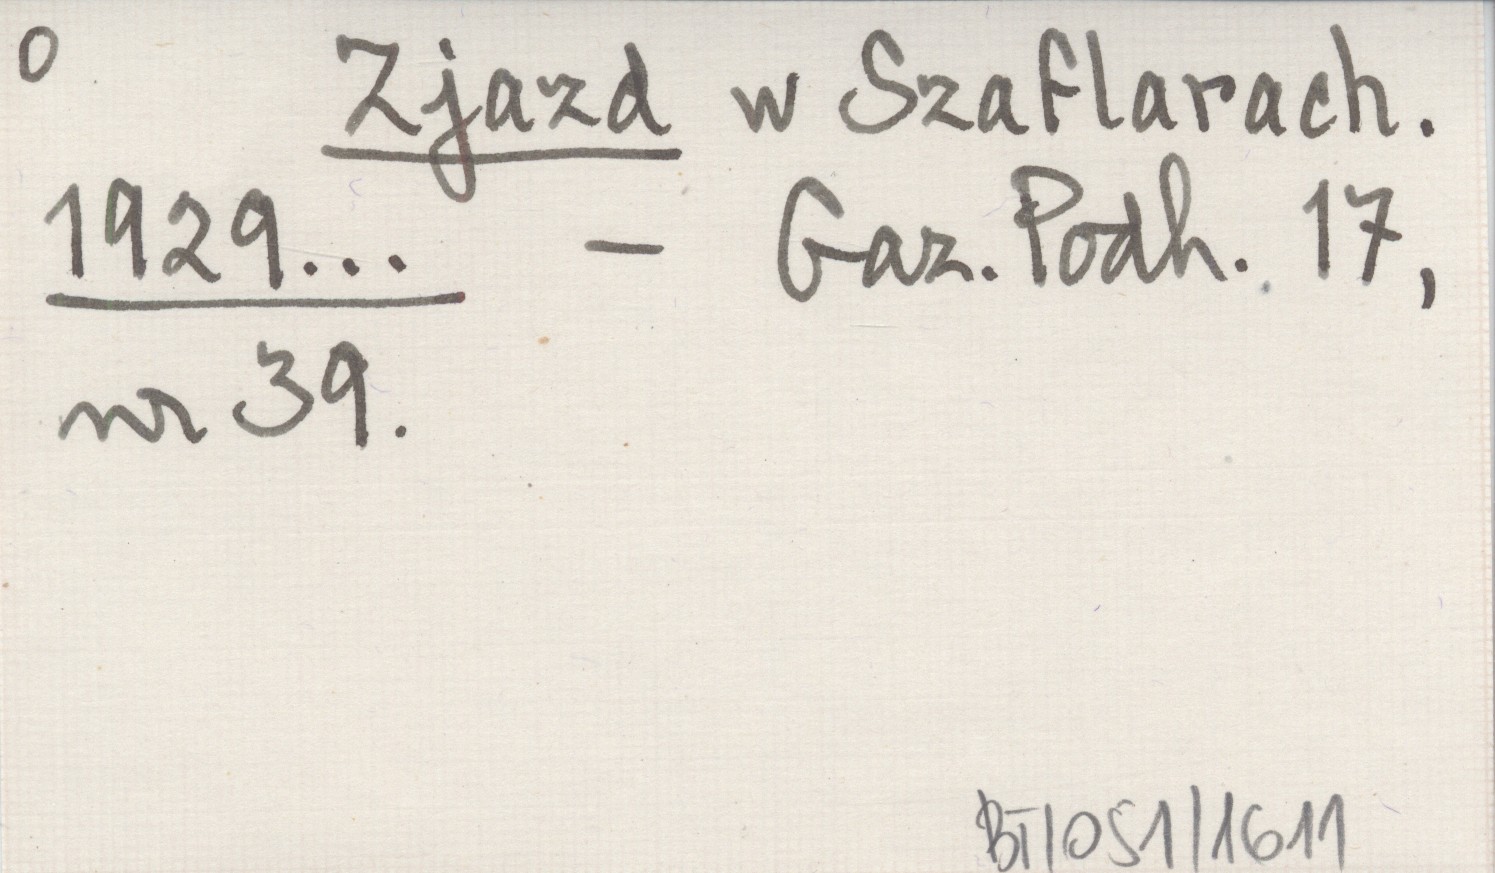 O
Zjazd w Szaflarach.
1929... - Gaz. Podh. 17,
nr 39.
BT/OS1/1611